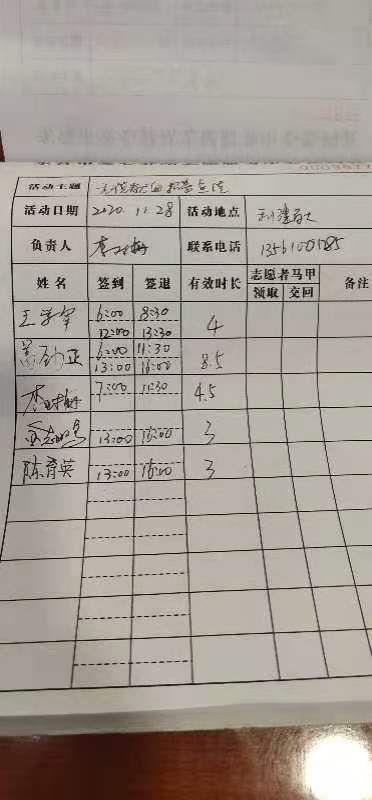 活动主题 无偿献血招募点位
活动日期 2020.11.28 活动地点
负责人 李 联系电话
姓名 签到 签退 有效时长 志愿者马甲 备注
领取 交回
王学军 6:00 8:30 4
12:00 13:30
劲正 6:00 11:30 8.5
13:00 16:00
李 7:00 11:30 4.5
13:00 16:00 3
陈育英 13:00 16:00 3